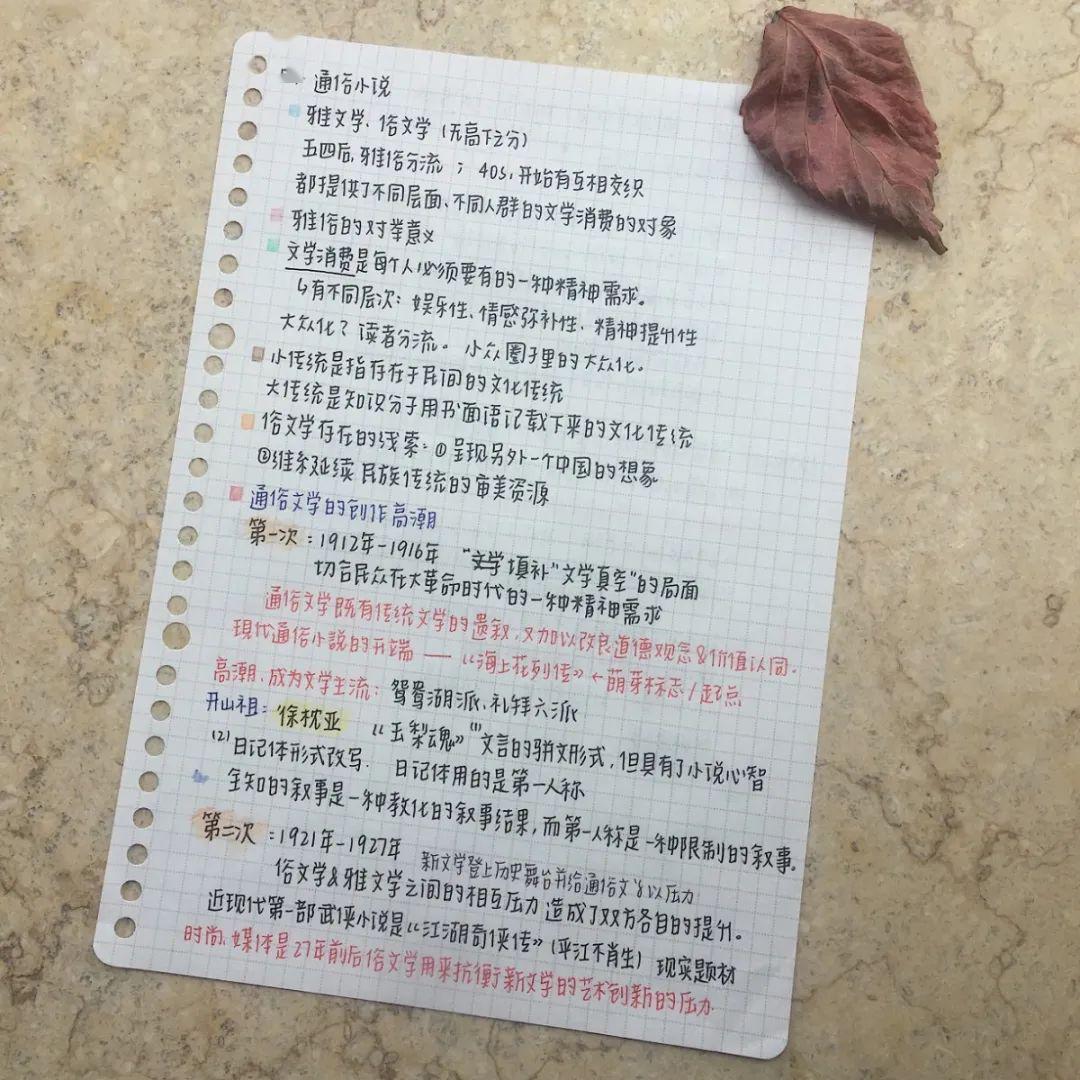 通俗小说
雅文学、俗文学（无高下之分）
五四后，雅俗分流；40s，开始有互相交织
都提供了不同层面、不同人群的文学消费的对象
雅俗的对举意义
文学消费是每个人必须要有的一种精神需求。
↳有不同层次：娱乐性、情感弥补性、精神提升性
大众化？读者分流。小众圈子里的大众化。
小传统是指存在于民间的文化传统
大传统是知识分子用书面语记载下来的文化传统
俗文学存在的线索：①呈现另外一个中国的想象
②维系延续民族传统的审美资源
通俗文学的创作高潮
第一次：1912年-1916年 “文学填补”文学真空”的局面
切合民众在大革命时代的一种精神需求
通俗文学既有传统文学的遗叙，又加以改良道德观念&价值认同.
現代通俗小説的开端 —— 《海上花列传》←萌芽标志/起点
高潮、成为文学主流：鸳鸯湖派、礼拜六派
开山祖：徐枕亚 《玉梨魂》(1)文言的骈文形式，但具有了小说心智
(2)日记体形式改写. 日记体用的是第一人称
全知的叙事是一种教化的叙事结果，而第一人称是一种限制的叙事.
第二次：1921年-1927年 新文学登上历史舞台并给通俗文学以压力
俗文学&雅文学之间的相互压力造成了双方各自的提升。
近现代第一部武侠小说是《江湖奇侠传》（平江不肖生）现实题材
时尚、媒体是27年前后俗文学用来抗衡新文学的艺术创新的压力.